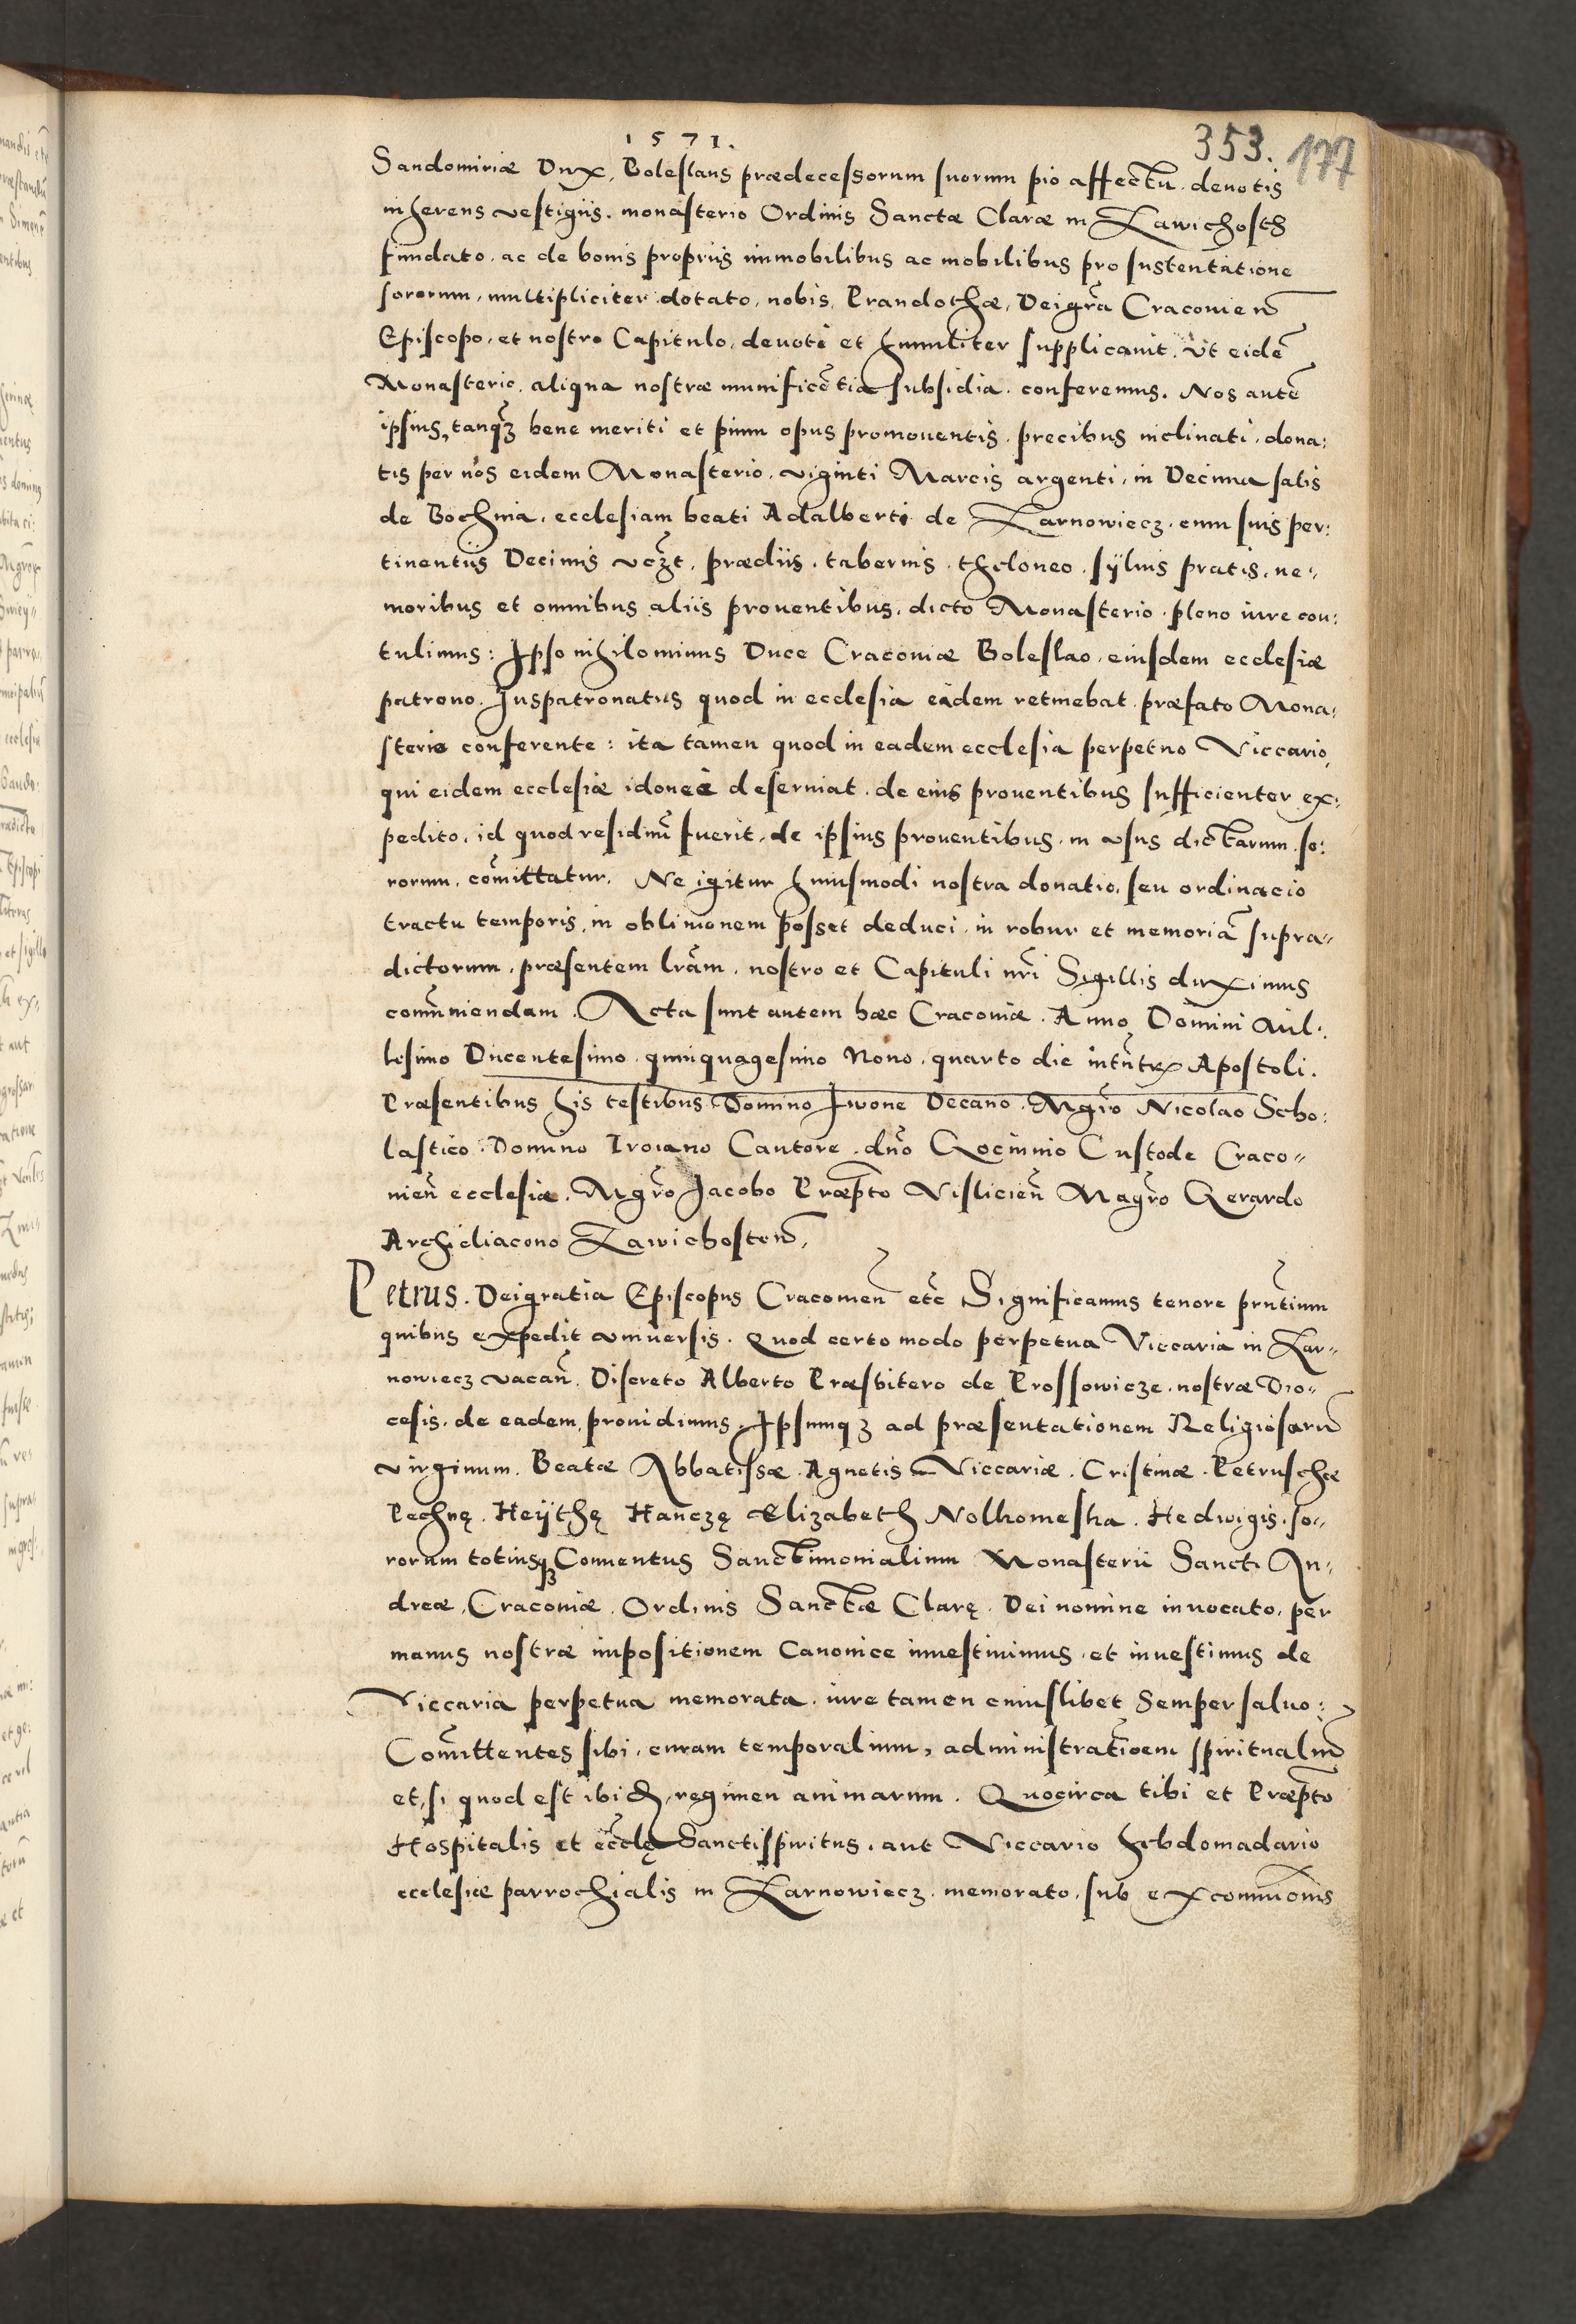 1571.
353. 177
Sandomiriæ Dux, Boleslaus prædecessorum suorum pio affectu. deuotis
inherens vestigiis. monasterio Ordinis Sanctæ Claræ in Zawichosth
fundato. ac de bonis propriis immobilibus ac mobilibus pro sustentatione
sororum, multipliciter dotato, nobis, Prandothæ, Deigrã Cracouieñ
Episcopo, et nostro Capitulo, deuotè et humiliter supplicauit. Vt eidẽ
Monasterio, aliqua nostræ munificẽtiæ subsidia. conferemus. Nos autẽ
ipsius, tanqȝ bene meriti et pium opus promouentis. precibus inclinati. dona:
tis per nos eidem Monasterio, viginti Marcis argenti, in Decima salis
de Bochnia, ecclesiam beati Adalberti de Zarnowiecz. cum suis per:
tinentiis Decimis vcȝt, prædiis, tabernis, theloneo, syluis pratis, ne:
moribus et omnibus aliis prouentibus, dicto Monasterio pleno iure con:
tulimus: Ipso nihilominus Duce Cracouiæ Boleslao, eiusdem ecclesiæ
patrono. Juspatronatus quod in ecclesia eadem retinebat præfato Mona:
sterio conferente: ita tamen quod in eadem ecclesia perpetuo Viccario,
qui eidem ecclesiæ idoneè deseruiat. de eius prouentibus sufficienter ex:
pedito, id quod residuũ fuerit, de ipsius prouentibus, in vsus dictarum. so:
rorum. cõmittatur. Ne igitur huiusmodi nostra donatio, seu ordinacio
tractu temporis, in obliuionem posset deduci, in robur et memoriã supra-
dictorum, præsentem lrãm, nostro et Capituli nrĩ Sigillis duximus
com̃uniendam. Acta sunt autem hæc Cracouiæ. Anno Domini Mil:
lesimo Ducentesimo quinquagesimo Nono, quarto die Apostoli.
Præsentibus his testibus Domino Iwone Decano. Mgrõ Nicolao Scho:
lastico. Domino Troiano Cantore. dnõ Custode Craco-
uieñ ecclesiæ. Mgrõ Jacobo Præpto Vislicieñ Magrõ Gerardo
Archidiacono Zawichosteñ.
Petrus. Deigratia Episcopus Cracouieñ etc̃ Significamus tenore prñtium
quibus expedit vniuersis. Quod certo modo perpetua Viccaria in Zar-
nowiecz vacañ. Discreto Alberto Præsbitero de Prossowicze. nostræ Dio-
cesis, de eadem prouidimus. Ipsumqȝ ad præsentationem Religiosarũ
virginum. Beatæ Abbatissæ. Agnetis Viccariæ. Cristinæ. Petruschæ
Pechnę. Heythę Hanczę Elizabeth Hedwigis. so-
rorum totiusqȝ Conuentus Sanctimonialium Monasterii Sancti An-
dreæ, Cracouiæ. Ordinis Sanctæ Clarę. Dei nomine inuocato, per
manus nostræ impositionem Canonice inuestiuimus. et inuestimus de
Viccaria perpetua memorata. iure tamen cuiuslibet Semper saluo:
Com̃ittentes sibi, curam temporalium, administratiõem spiritualiũ
et, si quod est ibid, regimen animarum. Quocirca tibi et Præpto
Hospitalis et eccłę Sanctispiritus, aut Viccario hebdomadario
ecclesiæ parrochialis in Zarnowiecz. memorato. sub excommuõnis